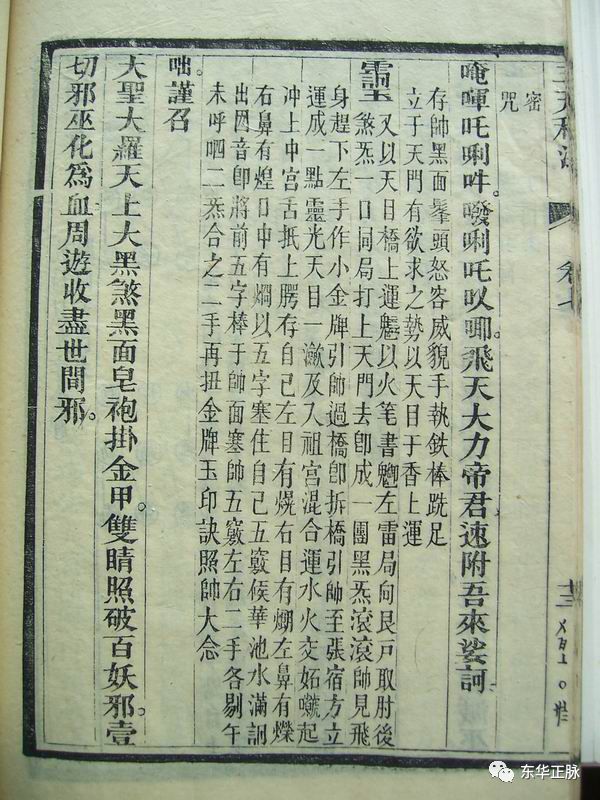 密
咒
唵㖶吒唎吽㗶唎吒㕥唧飛天大力帝君速附吾來娑訶
存帥黑面鬅頭怒容威貌手執鉄棒跣足
立于天門有欲求之勢以天目于香上運
又以天目橋上運魓以火筆書魍左雷局向艮戸取肘後
煞炁一口同局打上天門去卽成一團黑炁滾滾帥見飛
身趕下左手作小金牌引帥過橋卽拆橋引帥至張宿方立
運成一點靈光天目一瀲及入祖宮混合運水火交姤囐起
冲上中宮舌抵上腭存自己左目有熀右目有左鼻有爍
右鼻有煌口中有燗以五字塞住自己五竅候華池水滿詗
出因音卽將前五字棒于帥面塞帥五竅左右二手各剔午
未呼呬二炁合之二手再扭金牌玉印訣照帥大念
咄。謹召
大聖大羅天上大黑煞黑面皂袍掛金甲。雙睛照破百妖邪。壹
切邪巫化爲血周遊收盡世間邪。
卷七
东华正脉